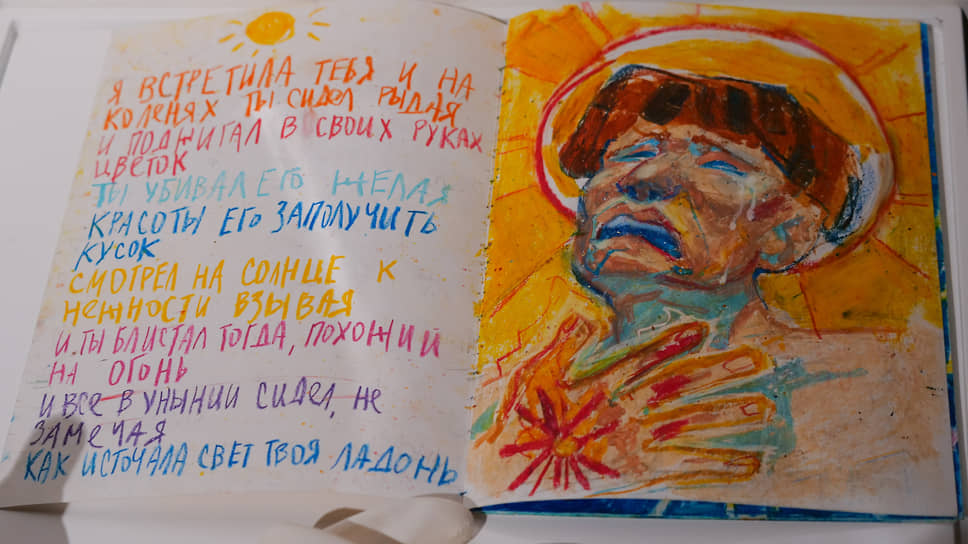 Я ВСТРЕТИЛА ТЕБЯ И НА
КОЛЕНЯХ ТЫ СИДЕЛ РЫДАЯ
И ПОДЖИГАЛ В СВОИХ РУКАХ
ЦВЕТОК
ТЫ УБИВАЛ ЕГО ЖЕЛАЯ
КРАСОТЫ ЕГО ЗАПОЛУЧИТЬ
КУСОК
СМОТРЕЛ НА СОЛНЦЕ К
НЕЖНОСТИ ВЗЫВАЯ
И ТЫ БЛИСТАЛ ТОГДА, ПОХОЖИЙ
НА ОГОНЬ
И ВСЕ В УНЫНИИ СИДЕЛ, НЕ
ЗАМЕЧАЯ
КАК ИСТОЧАЛА СВЕТ ТВОЯ ЛАДОНЬ